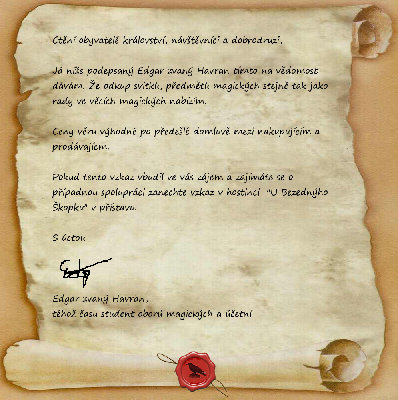 Ctění obyvatelé království, návštěvníci a dobrodruzi,
Já níže podepsaný Edgar zvaný Havran tímto na vědomost
dávám. Že odkup svitků, předmětů magických stejně tak jako
rady ve věcích magických nabízím.
Ceny věru výhodné po předešlé domluvě mezi nakupujícím a
prodávajícím.
Pokud tento vzkaz vbudil ve vás zájem a zajímáte se o
případnou spolupráci zanechte vzkaz v hostinci "U Bezedného
Škopku" v přístavu.
S úctou
Edgar zvaný Havran,
téhož času student oborů magických a účetní